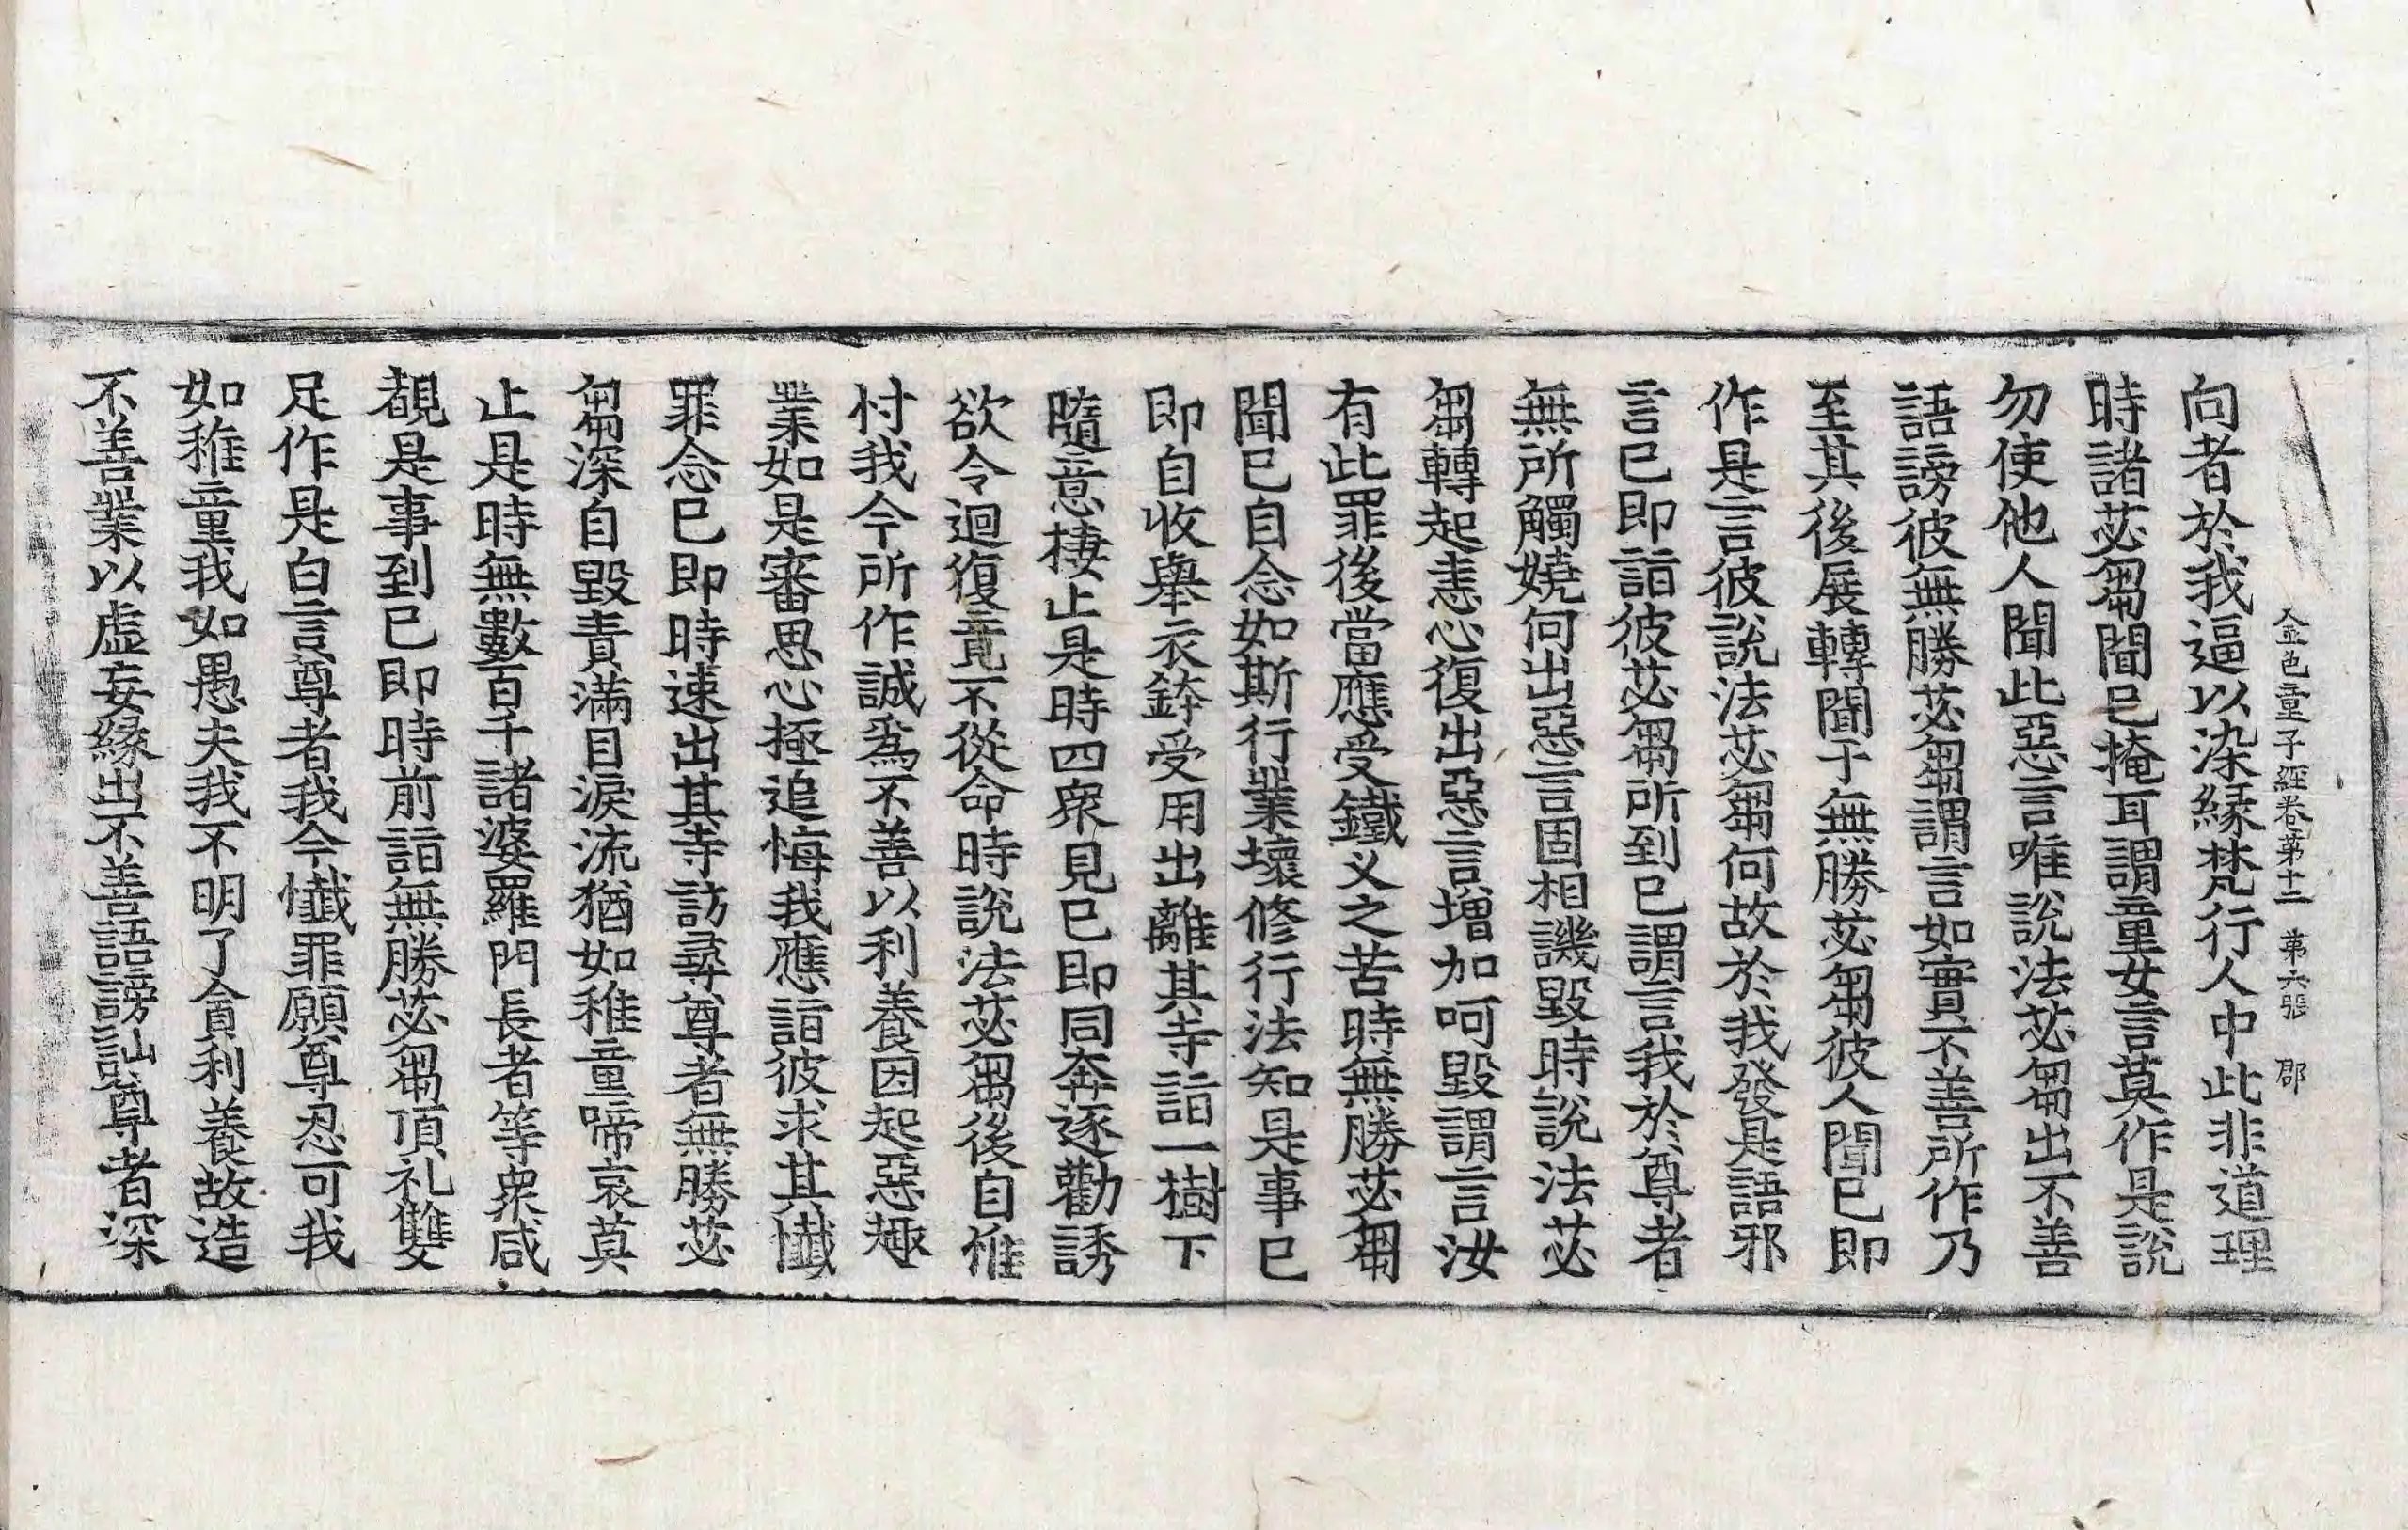 金色童子經卷第十二 第六張 郡
向者於我逼以染緣梵行人中此非道理
時諸苾芻聞已掩耳謂童女言莫作是說
勿使他人聞此惡言唯說法苾芻出不善
語謗彼無勝苾芻謂言如實不善所作乃
至其後展轉聞于無勝苾芻彼人聞已即
作是言彼說法苾芻何故於我發是語邪
言已即詣彼苾芻所到已謂言我於尊者
無所觸嬈何出惡言固相譏毀時說法苾
芻轉起恚心復出惡言增加呵毀謂言汝
有此罪後當應受鐵叉之苦時無勝苾芻
聞已自念如斯行業壞修行法知是事已
即自收舉衣鉢受用出離其寺詣一樹下
隨意棲止是時四衆見已即同奔逐勸誘
欲令迴復竟不從命時說法苾芻後自惟
忖我今所作誠為不善以利養因起惡趣
業如是審思心極追悔我應詣彼求其懺
罪念已即時速出其寺訪尋尊者無勝苾
芻深自毀責滿目淚流猶如稚童啼哀莫
止是時無數百千諸婆羅門長者等衆咸
覩是事到已即時前詣無勝苾芻頂礼雙
足作是白言尊者我今懺罪願尊忍可我
如稚童我如愚夫我不明了貪利養故造
不善業以虛妄緣出不善語謗訕尊者深